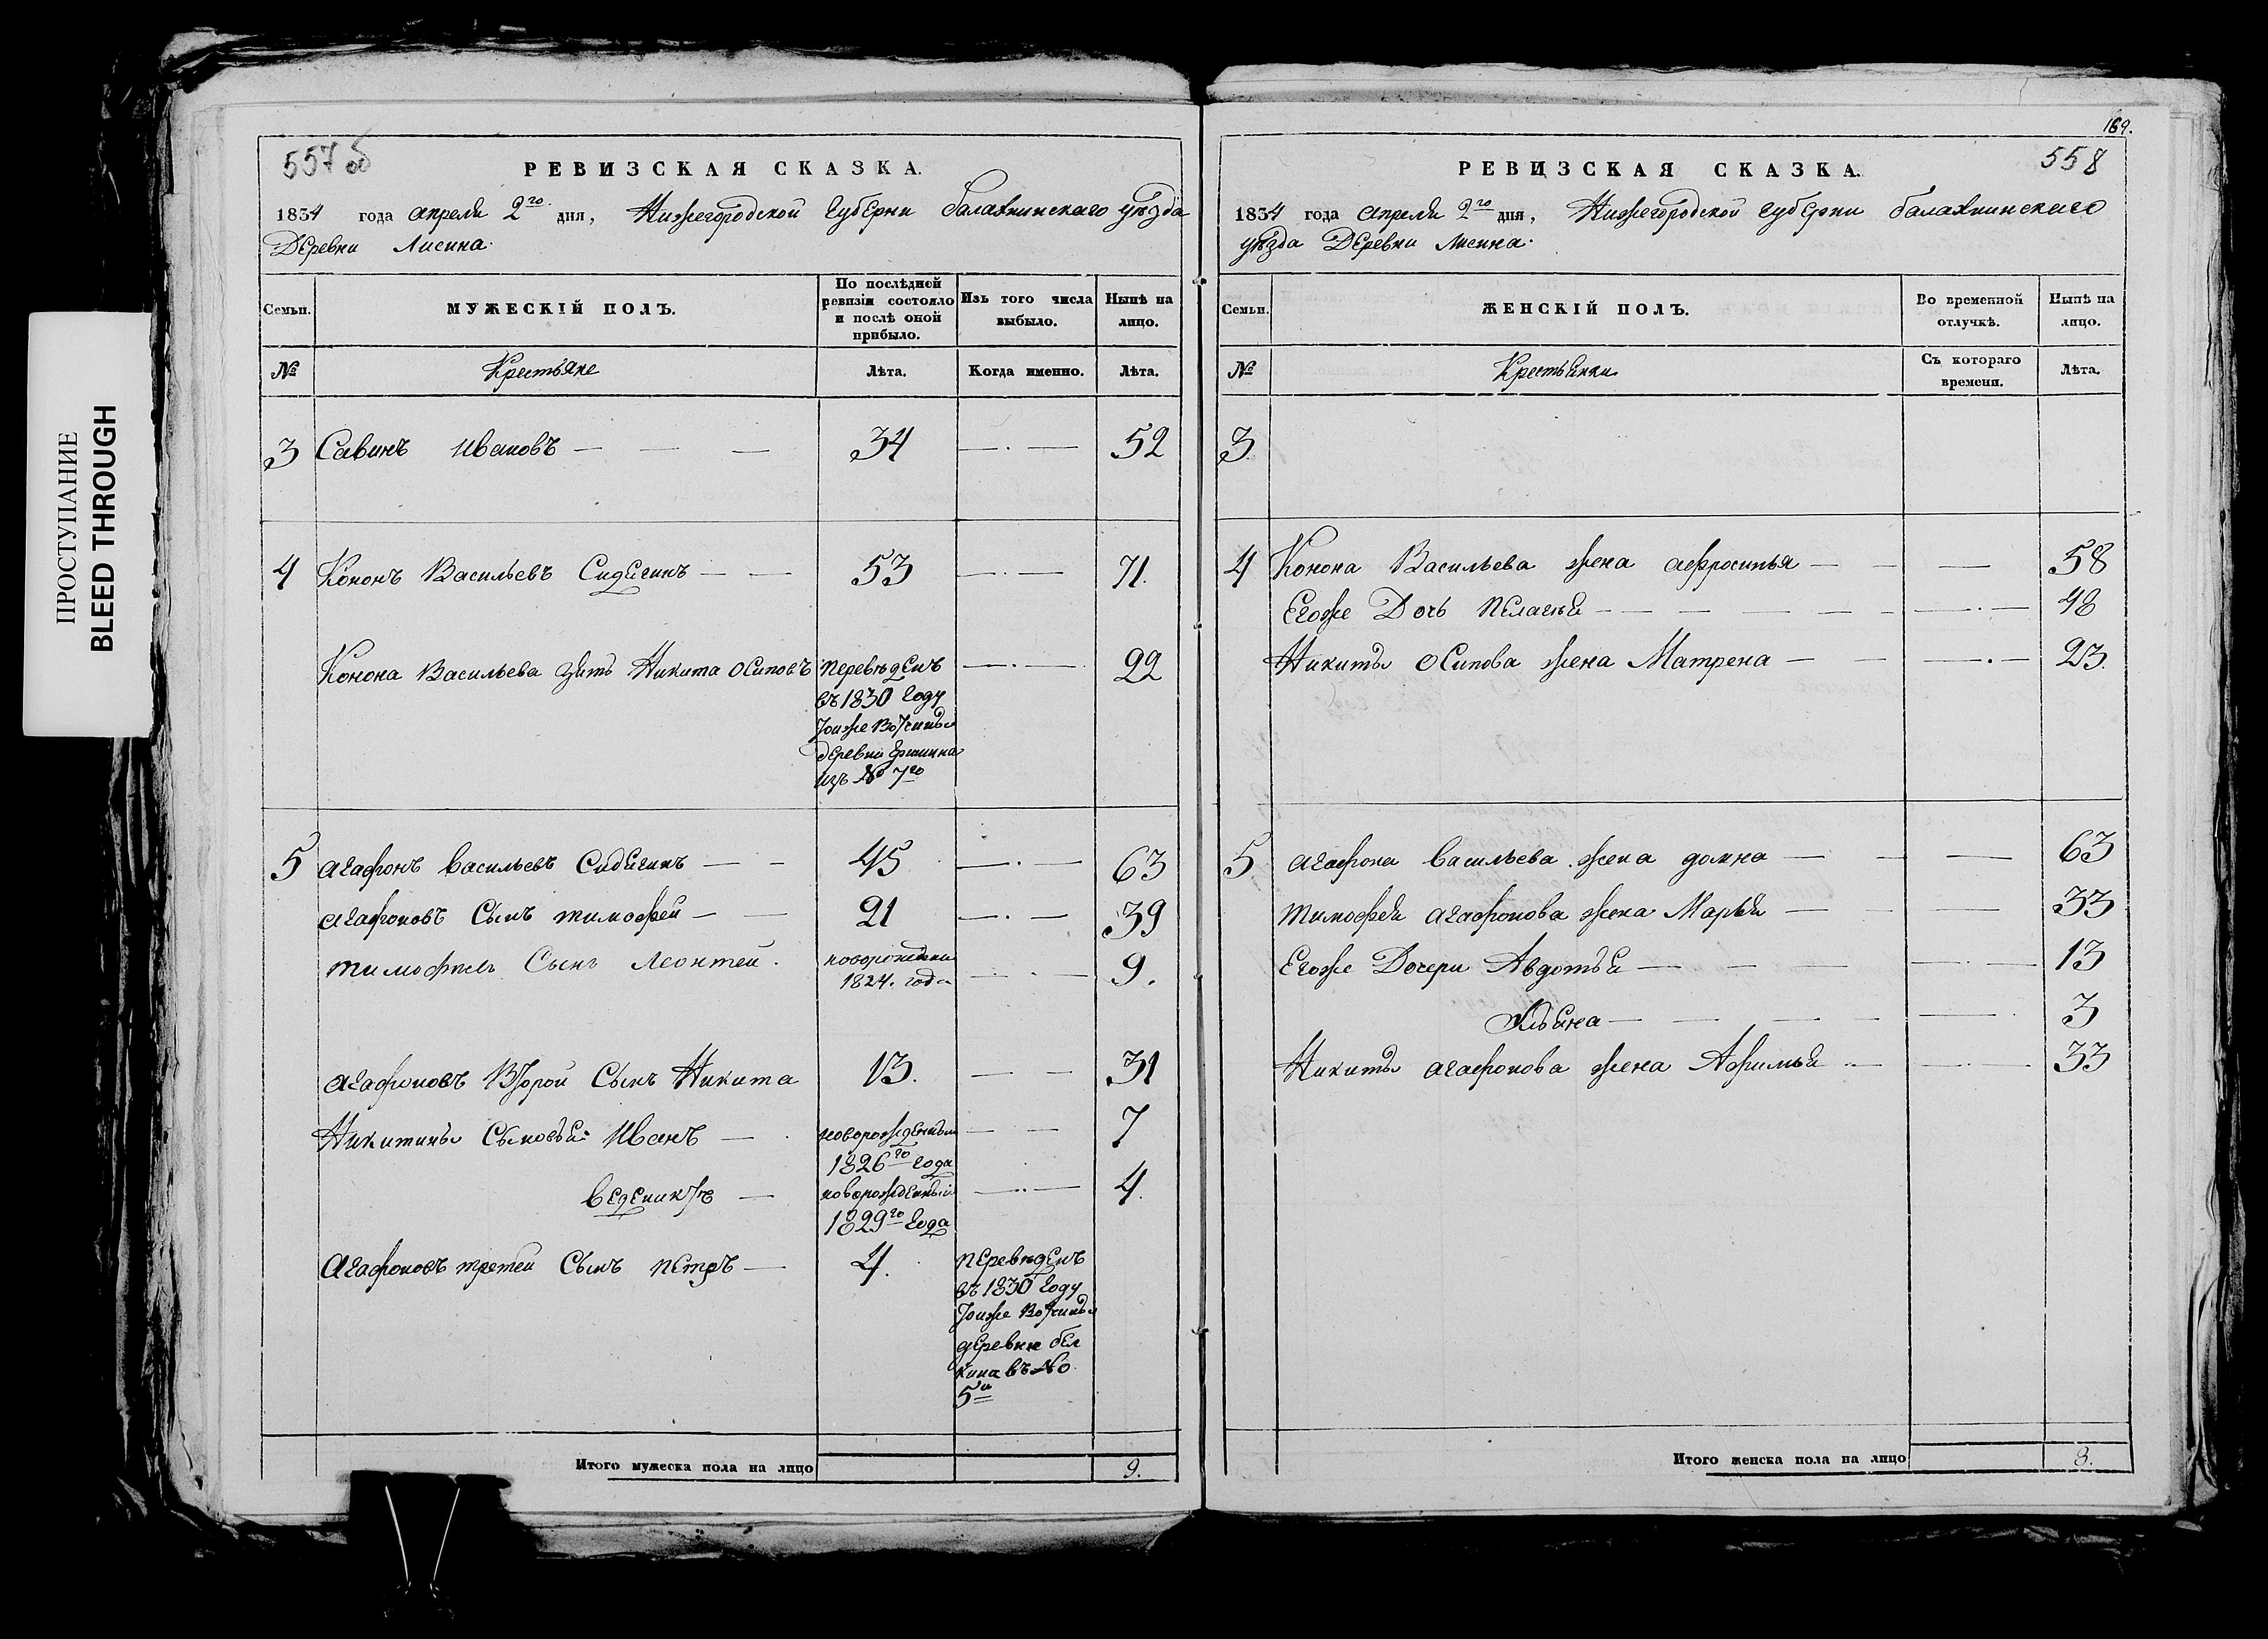 ПРОСТУПАНИЕ
BLEED THROUGH
557 об
РЕВИЗСКАЯ СКАЗКА.
1834 года апреля 2го дня, Нижегородской губерни балахнинскаго уезда
Деревни Лисина.
Семьи. МУЖЕСКІЙ ПОЛЪ. По послѣдней ревизіи состояло и послѣ оной прибыло. Изъ того числа выбыло. Нынѣ на лицо.
№ Крестьяне Лѣта. Когда именно. Лѣта.
3 Савинъ Ивановъ — — — 34 —.— 52
4 Кононъ Васильевъ Сидягинъ — — 53 —.— 71.
Конона Васильева зять Никита Осиповъ переведенъ —.— 22
въ 1830 году
тоиже вотчины
деревни
изъ № 7го
5 агафонъ васильевъ Сидягинъ — — 45 —.— 63
агафоновъ Сынъ тимофей — — 21 —.— 39
тимофѣевъ Сынъ Леонтей. новорожденны — — 9.
1824. года
агафоновъ Второй Сынъ Никита 13. — — 31
Никитины Сыновья: Иванъ — новорожденны — — 7
1826го года
Веденихтъ — новорожденный —..— 4.
1829го года
Агафоновъ третей Сынъ петръ — 4. переведенъ
въ 1830 году
тоиже вотчины
деревни бел
кина въ №
5й
Итого мужеска пола на лицо 9.
169.
558
РЕВИЗСКАЯ СКАЗКА.
1834 года апреля 2го дня, Нижегородской губерни балахнинскаго
уезда Деревни Лисина.
Семьи. ЖЕНСКІЙ ПОЛЪ. Во временной отлучкѣ. Нынѣ на лицо.
№ Крестьянки Съ котораго времени. Лѣта.
3
4 Конона Васильева жена афросинья — — — 58
Егоже Дочь пелагья — — — — — — —.— 48
Никиты Осипова жена Матрена — — —.— 23.
5 агафона васильева жена домна — — — 63
тимофея агафонова жена Марья — — — 33
Егоже Дочери Авдотья — — — —.— 13
— — — — — 3
Никиты агафонова жена Афимья — — — 33
Итого женска пола на лицо 8.